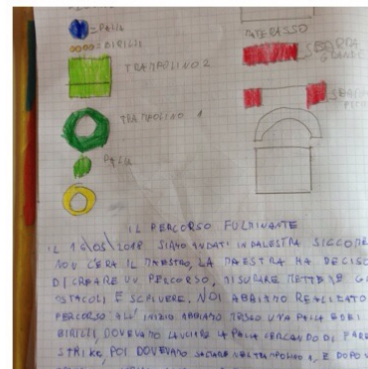 = PALLA
= BIRILLI
MATERASSO
TRAMPOLINO 2
SBARRA
GRANDE
TRAMPOLINO 1
SBARRA
PALLA
IL PERCORSO FULMINANTE
IL 16\05\2018 SIAMO ANDATI IN PALESTRA SICCOME
NON C'ERA IL MAESTRO, LA MAESTRA HA DECISO
DI CREARE UN PERCORSO, MISURARE METTERE
STACOLI E SCRIVERE. NOI ABBIAMO REALIZZATO
PERCORSO ALL' INIZIO ABBIAMO MESSO UNA PALLA E DEI
BIRILLI, DOVEVAMO LANCIARE LA PALLA CERCANDO DI FARE
STRIKE, POI DOVEVAMO SALTARE NEL TRAMPOLINO, E DOPO